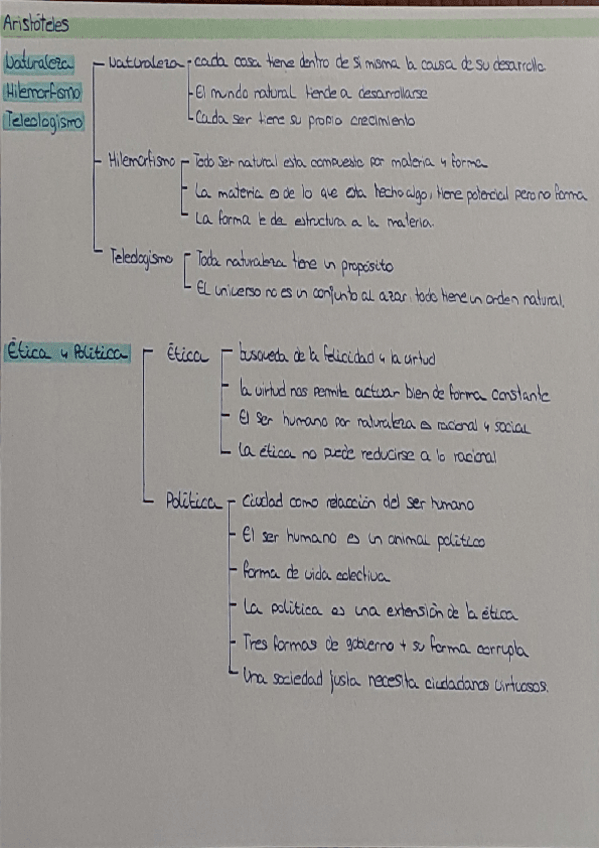 Aristóteles
Naturaleza
Hilemorfismo
Teleologismo
Naturaleza - cada cosa tiene dentro de si misma la causa de su desarrollo
- El mundo natural tiende a desarrollarse
- Cada ser tiene su propio crecimiento
Hilemorfismo - Todo ser natural esta compuesto por materia y forma
- La materia es de lo que esta hecho algo, tiene potencial pero no forma
- La forma le da estructura a la materia.
Teleologismo - Toda naturaleza tiene un propósito
- El universo no es un conjunto al azar, todo tiene un orden natural.
Ética y Política
Ética - busqueda de la felicidad y la virtud
- la virtud nos permite actuar bien de forma constante
- El ser humano por naturaleza es racional y social
- La ética no puede reducirse a lo racional
Política - Ciudad como relacción del ser humano
- El ser humano es un animal político
- forma de vida colectiva
- La política es una extensión de la ética
- Tres formas de gobierno + su forma corrupta
- Una sociedad justa necesita ciudadanos virtuosos.